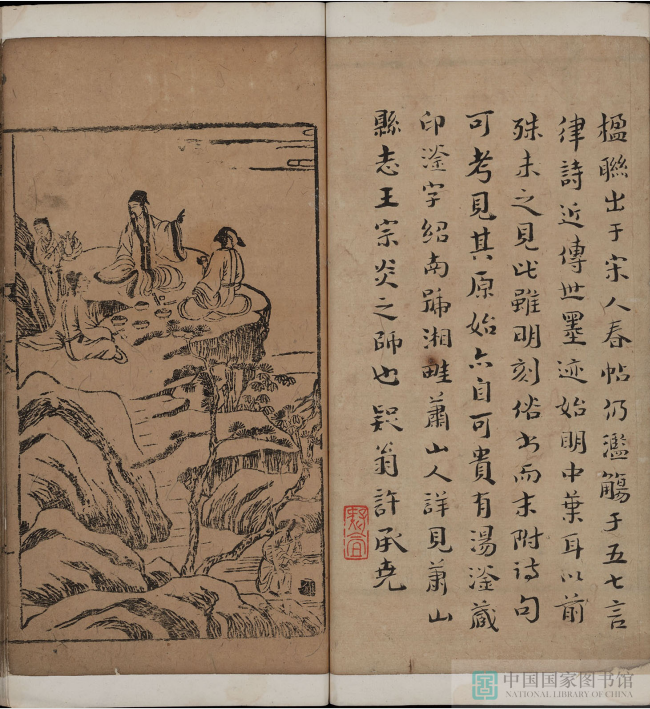 楹聯出于宋人春帖仍濫觴于五七言
律詩近傳世墨迹始明中葉耳以前
殊未之見此雖明刻俗書而末附詩句
可考見其原始亦自可貴有湯滏藏
印滏字紹南號湘畦蕭山人詳見蕭山
縣志王宗炎之師也疑翁許承堯
中国国家图书馆
NATIONAL LIBRARY OF CHINA